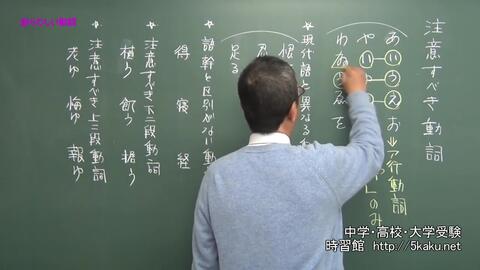 紛らわしい動詞
注意すべき動詞
あいうえお⇒ア行動詞
や
のみ
わゐ
ゑを
＊現代語と異なる
恨
忍
足る
＊語幹と区別がない動
得 寝 経
＊注意すべき下二段動詞
植う 飢う 据う
＊注意すべき上二段動詞
老ゆ 悔ゆ 報ゆ
中学・高校・大学受験
時習館 http://5kaku.net